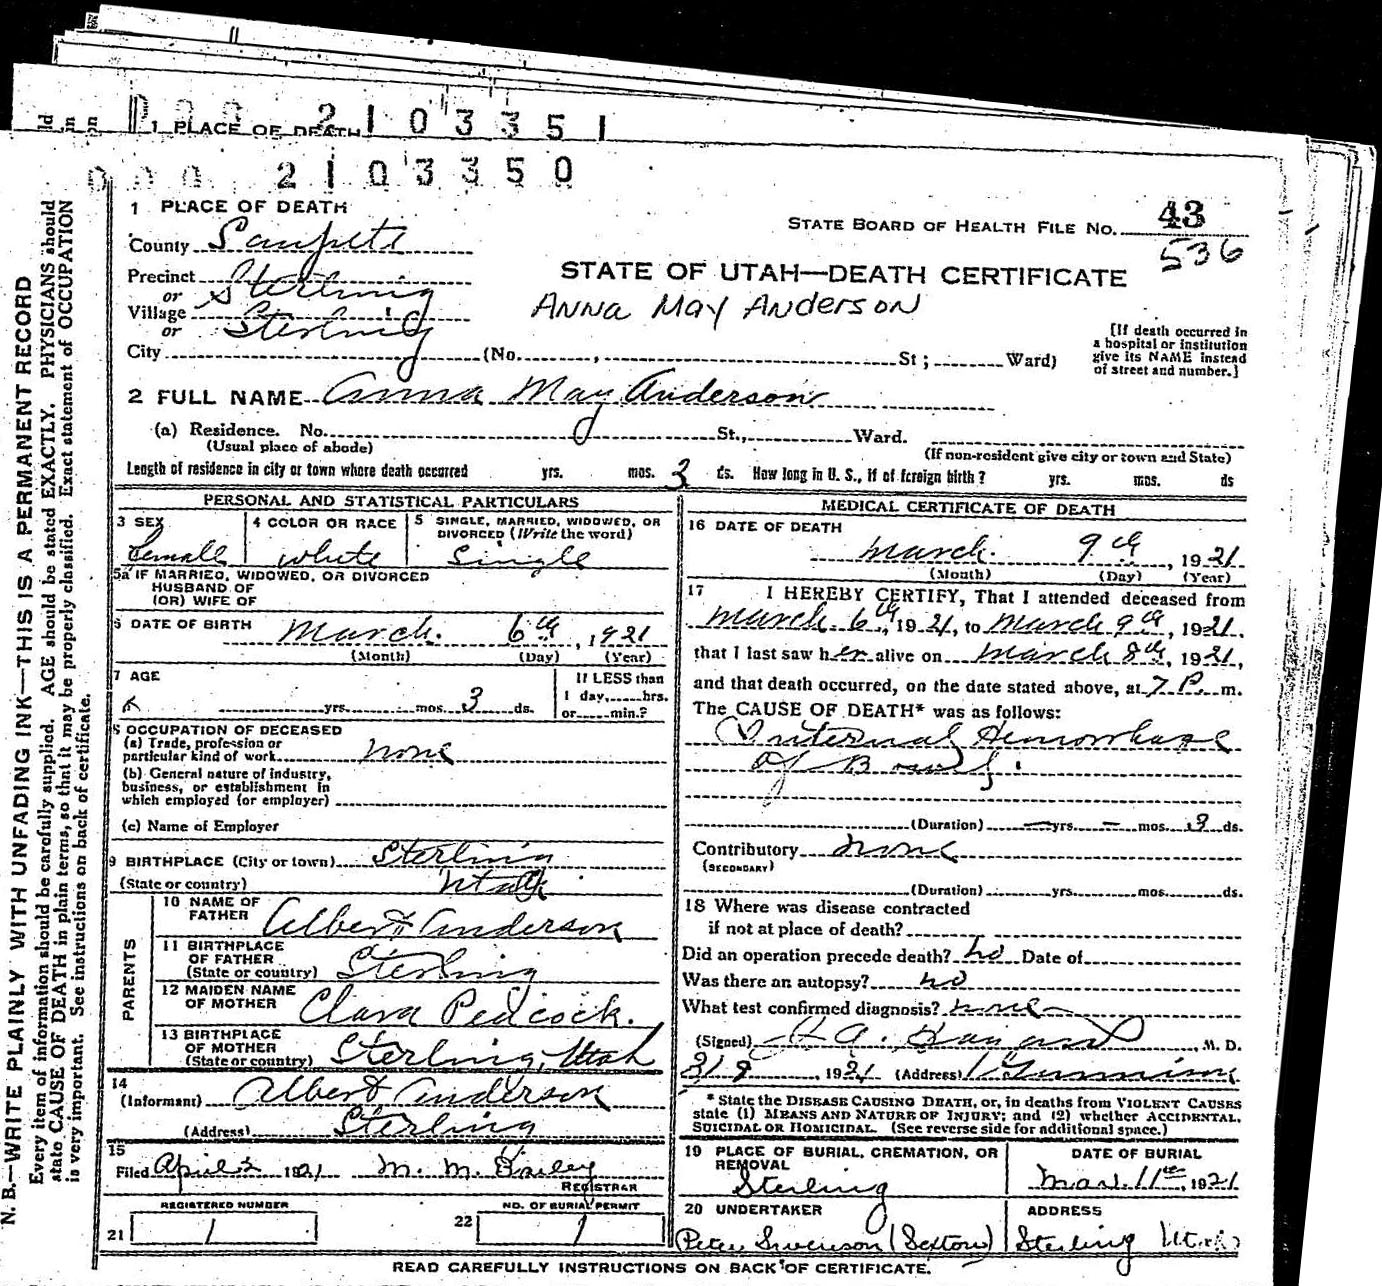 2103351
1 PLACE OF DEATH
000 2103350
1 PLACE OF DEATH
STATE BOARD OF HEALTH FILE No. 43
536
County Sanpete
STATE OF UTAH—DEATH CERTIFICATE
Precinct Sterling
or
Anna May Anderson
Village Sterling
or
City (No. , St ; Ward)
[If death occurred in
a hospital or institution
give its NAME instead
of street and number.]
2 FULL NAME Anna May Anderson
(a) Residence. No. St., Ward.
(Usual place of abode)
(If non-resident give city or town and State)
Length of residence in city or town where death occurred yrs. mos. 3 ds. How long in U. S., if of foreign birth? yrs. mos. ds
PERSONAL AND STATISTICAL PARTICULARS
3 SEX
Female
4 COLOR OR RACE
white
5 SINGLE, MARRIED, WIDOWED, OR
DIVORCED (Write the word)
Single
5a IF MARRIED, WIDOWED, OR DIVORCED
HUSBAND OF
(OR) WIFE OF
6 DATE OF BIRTH March. 6th, 1921
(Month) (Day) (Year)
7 AGE
yrs. mos. 3 ds.
If LESS than
1 day, hrs.
or min.?
8 OCCUPATION OF DECEASED
(a) Trade, profession or
particular kind of work none
(b) General nature of industry,
business, or establishment in
which employed (or employer)
(c) Name of Employer
9 BIRTHPLACE (City or town) Sterling
(State or country) Utah
PARENTS
10 NAME OF
FATHER Albert Anderson
11 BIRTHPLACE
OF FATHER
(State or country) Sterling
12 MAIDEN NAME
OF MOTHER Clara Peacock.
13 BIRTHPLACE
OF MOTHER
(State or country) Sterling, Utah
14
(Informant) Albert Anderson
(Address) Sterling
15
Filed April 2 1921 M. M. Bailey
REGISTRAR
REGISTERED NUMBER
21 1
NO. OF BURIAL PERMIT
22 1
MEDICAL CERTIFICATE OF DEATH
16 DATE OF DEATH
March. 9th, 1921
(Month) (Day) (Year)
17 I HEREBY CERTIFY, That I attended deceased from
March 6th, 1921, to March 9th, 1921,
that I last saw her alive on March 8th, 1921,
and that death occurred, on the date stated above, at 7 P. m.
The CAUSE OF DEATH* was as follows:
Internal Hemorrhage
of Bowels.
(Duration) — yrs. — mos. 3 ds.
Contributory none
(SECONDARY)
(Duration) yrs. mos. ds.
18 Where was disease contracted
if not at place of death?
Did an operation precede death? no Date of
Was there an autopsy? no
What test confirmed diagnosis? none
(Signed) , M. D.
1921 (Address) Gunnison
* State the DISEASE CAUSING DEATH, or, in deaths from VIOLENT CAUSES
state (1) MEANS AND NATURE OF INJURY; and (2) whether ACCIDENTAL,
SUICIDAL OR HOMICIDAL. (See reverse side for additional space.)
19 PLACE OF BURIAL, CREMATION, OR
REMOVAL
Sterling
DATE OF BURIAL
Mar. 11th, 1921
20 UNDERTAKER
Peter Swenson (Sexton)
ADDRESS
Sterling Utah
READ CAREFULLY INSTRUCTIONS ON BACK OF CERTIFICATE.
N. B.—WRITE PLAINLY WITH UNFADING INK—THIS IS A PERMANENT RECORD
Every item of information should be carefully supplied. AGE should be stated EXACTLY. PHYSICIANS should
state CAUSE OF DEATH in plain terms, so that it may be properly classified. Exact statement of OCCUPATION
is very important. See instructions on back of certificate.